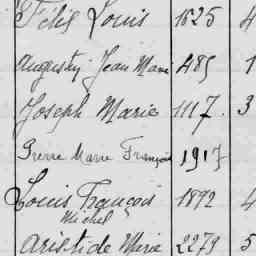 Félix Louis 1625 4
Augustin Jean Marie 485 1
Joseph Marie 1117. 3
Pierre Marie François 1917
Louis François 1892 4
Michel
Aristide Marie 2279 5